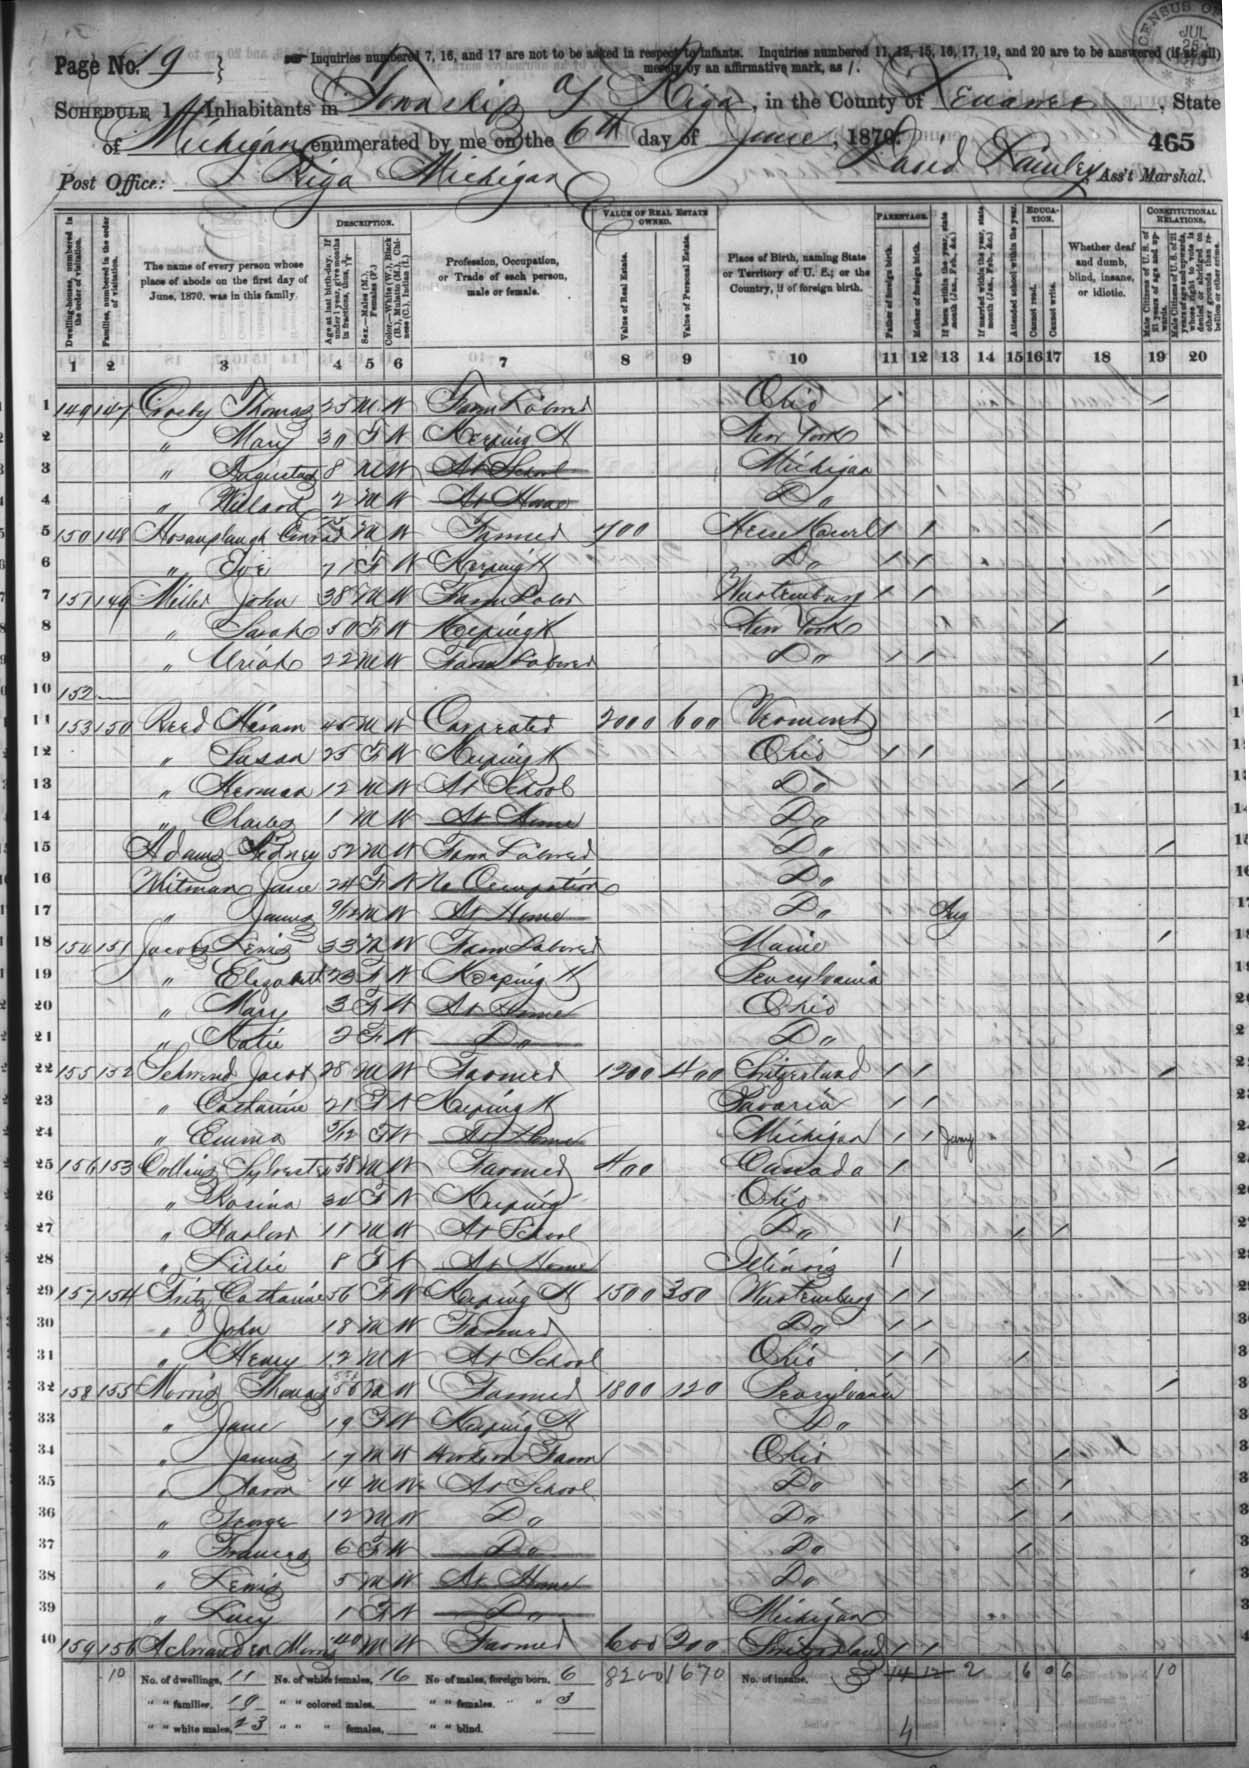 Page No. 19
Inquiries numbered 7, 16, and 17 are not to be asked in respect to infants. Inquiries numbered 11, 12, 15, 16, 17, 19, and 20 are to be answered (if at all)
merely by an affirmative mark, as /.
CENSUS JUL 1870
SCHEDULE 1.—Inhabitants in Township of Riga, in the County of Lenawee, State
of Michigan enumerated by me on the 6th day of June, 1870.
465
Post Office: Riga Michigan David Ass't Marshal.
Dwelling-houses, numbered in the order of visitation.
Families, numbered in the order of visitation.
The name of every person whose place of abode on the first day of June, 1870, was in this family.
DESCRIPTION.
Age at last birth-day. If under 1 year, give months in fractions, thus, 3/12.
Sex.—Males (M.), Females (F.)
Color.—White (W.), Black (B.), Mulatto (M.), Chinese (C.), Indian (I.)
Profession, Occupation, or Trade of each person, male or female.
VALUE OF REAL ESTATE OWNED.
Value of Real Estate.
Value of Personal Estate.
Place of Birth, naming State or Territory of U. S.; or the Country, if of foreign birth.
PARENTAGE.
Father of foreign birth.
Mother of foreign birth.
If born within the year, state month (Jan., Feb., &c.)
If married within the year, state month (Jan., Feb., &c.)
EDUCATION.
Attended school within the year.
Cannot read.
Cannot write.
Whether deaf and dumb, blind, insane, or idiotic.
CONSTITUTIONAL RELATIONS.
Male Citizens of U. S. of 21 years of age and upwards.
Male Citizens of U. S. of 21 years of age and upwards, whose right to vote is denied or abridged on other grounds than rebellion or other crime.
1 2 3 4 5 6 7 8 9 10 11 12 13 14 15 16 17 18 19 20
1 149 147 Crosby Thomas 25 M W Farm Laborer Ohio / /
2 " Mary 30 F W Keeping H New York
3 " Augustus 8 M W At School Michigan
4 " Willard 2 M W At Home Do "
5 150 148 Hosauplaugh Conrad M W Farmer 700 Hesse / / /
6 " Eve 71 F W Keeping H Do " / /
7 151 149 Miller John 38 M W Farm Labor Wurtemburg / / /
8 " Sarah 50 F W Keeping H New York /
9 " Uriah 22 M W Farm Laborer Do " / / /
10 152 —
11 153 150 Reed Hiram 45 M W Carpenter 2000 600 Vermont /
12 " Susan 25 F W Keeping H Ohio / /
13 " Herman 12 M W At School Do " / /
14 " Charles 1 M W At Home Do "
15 Adams Sidney 52 M W Farm Laborer Do " /
16 Witman Jane 24 F W No Occupation Do "
17 " James 9/12 M W At Home Do " Aug
18 154 151 Jacobs Lewis 33 M W Farm Laborer Maine /
19 " Elizabeth 23 F W Keeping H Pensylvania
20 " Mary 3 F W At Home Ohio
21 " Katie 2 F W Do " Do "
22 155 152 Schwend Jacob 28 M W Farmer 1200 400 Switzerland / / /
23 " Catharine 21 F W Keeping H Bavaria / /
24 " Emma 5/12 F W At Home Michigan / / Jany
25 156 153 Collins Sylvester 38 M W Farmer 400 Canada / /
26 " Rosina 34 F W Keeping Ohio
27 " Harlow 11 M W At School Do " / / /
28 " Lillie 8 F W At Home Illinois /
29 157 154 Fritz Catharine 56 F W Keeping H 1500 350 Wurtemburg / /
30 " John 18 M W Farmer Do " / /
31 " Henry 12 M W At School Ohio / / /
32 158 155 Morris Thomas M W Farmer 1800 120 Pensylvania /
33 " Jane 19 F W Keeping H Do "
34 " James 17 M W Work on Farm Ohio /
35 " Aaron 14 M W At School Do " / /
36 " George 12 M W Do " Do " / /
37 " Frances 6 F W Do " Do " /
38 " Lewis 5 M W At Home Do "
39 " Lucy 1 F W Do " Michigan
40 159 156 Morris 40 M W Farmer 600 200 Switzerland / /
10 No. of dwellings, 11 No. of white females, 16 No of males, foreign born, 6 8200 1670 No. of insane, 3 14 12 2 6 0 6 10
" " families, 10 " " colored males, " " females, " " 3
" " white males, 23 " " " females, " " blind. 4